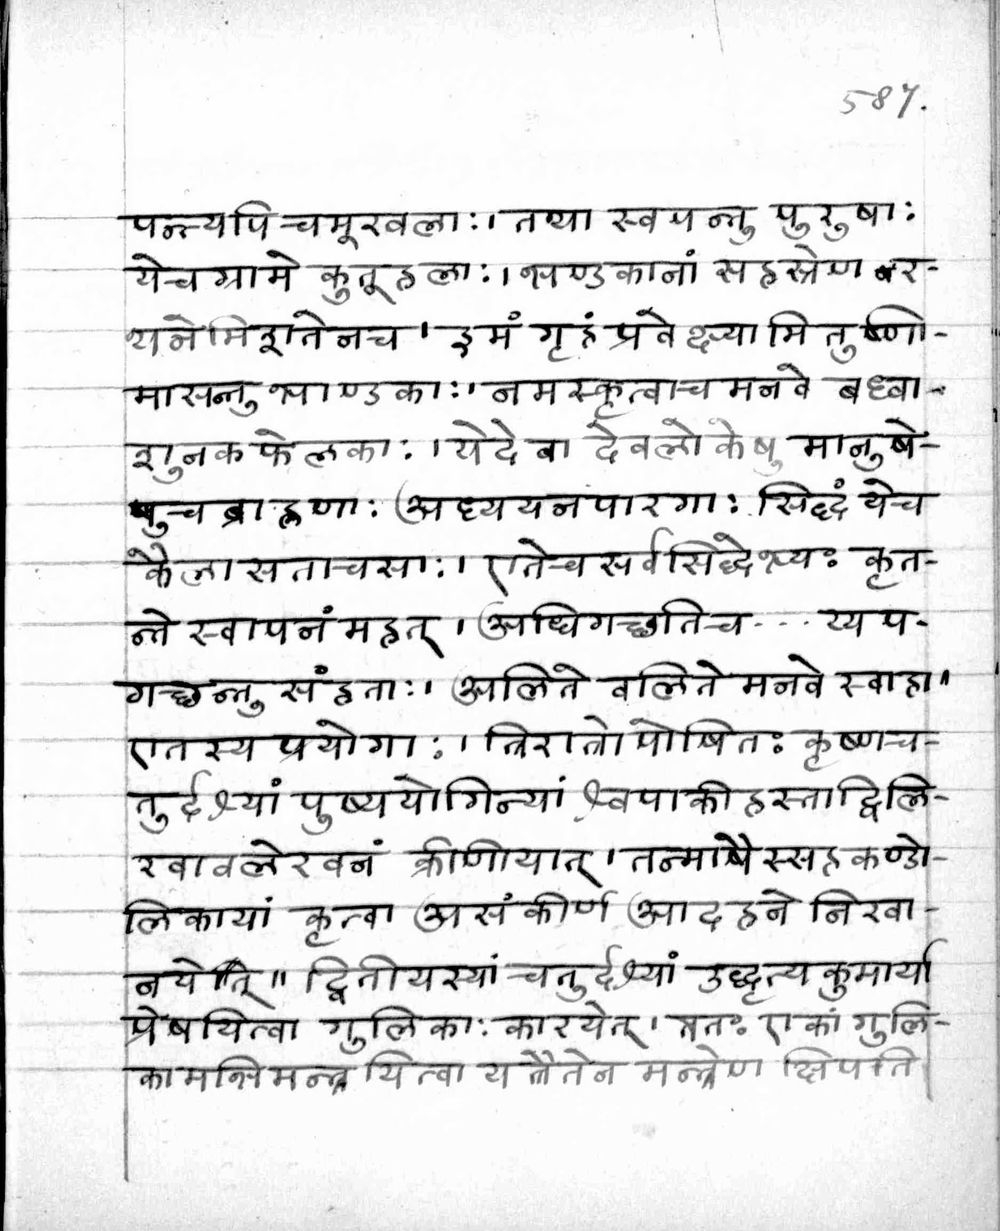 587.
पन्त्यपि चमूखलाः। तथा स्वपन्तु पुरुषाः
येच ग्रामे कुतूहलाः। भण्डकानां सहस्रेण रर-
थनेमिशतेनच । इमं गृहं प्रवेक्ष्यामि तुष्णी-
मासन्तु भाण्डकाः। नमस्कृत्वाच मनवे बध्वा-
शुनकफेलकाः। ये देवा देवलोकेषु मानुषे-
षुच ब्राह्मणाः अध्ययनपारगाः सिद्धं येच
कैलासताचसाः। एतेच सर्वसिद्धेभ्यः कृत-
न्ते स्वापनं महत् । अधिगच्छतिच ... य्यप-
गच्छन्तु संहताः। अलिते वलिते मनवे स्वाहा॥
एतस्य प्रयोगाः। त्रिरात्रोपोषितः कृष्णच-
तुर्दश्यां पुष्ययोगिन्यां श्वपाकीहस्ताद्विलि-
खावलेखनं क्रीणीयात् । तन्माषैस्सह कण्डो-
लिकायां कृत्वा असंकीर्ण आदहने निखा-
नयेत् ॥ द्वितीयस्यां चतुर्दश्यां उद्धृत्य कुमार्या
प्रेषयित्वा गुलिकाः कारयेत् । ततः एकां गुलि-
कामभिमन्त्रयित्वा यत्रैतेन मन्त्रेण क्षिपति